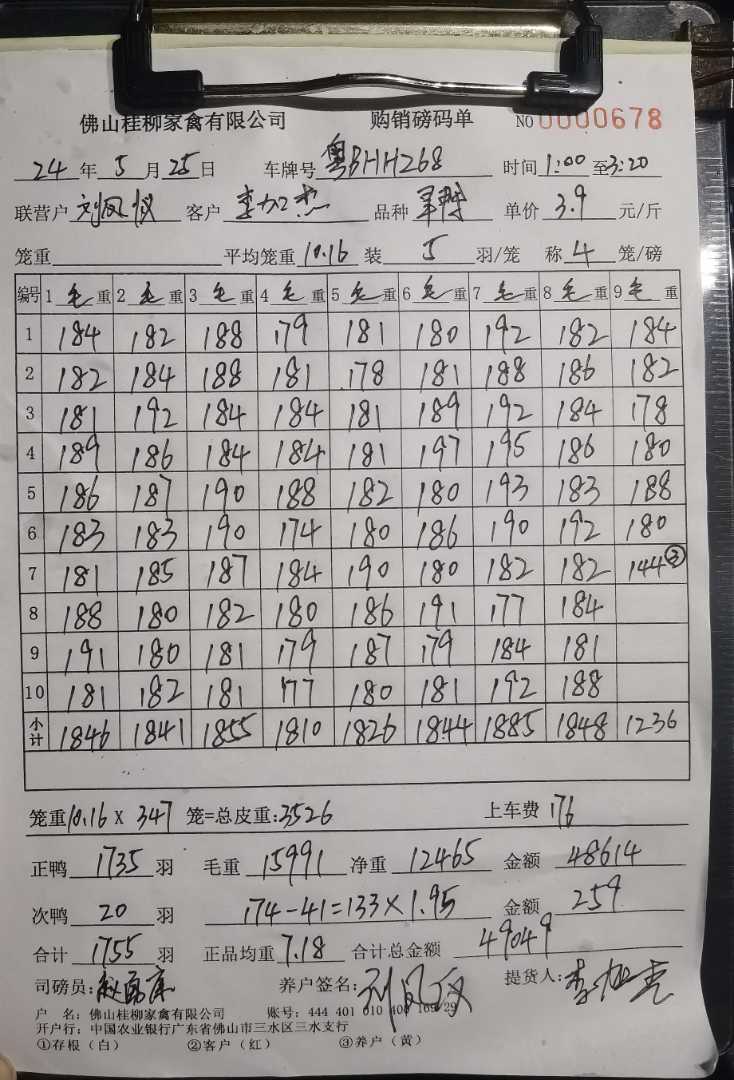 佛山桂柳家禽有限公司 购销磅码单 NO 0000678
24年5月25日 车牌号 粤BHH268 时间1:00至3:20
联营户 刘凤仪 客户 李加杰 品种 单价 3.9 元/斤
笼重 平均笼重 10.16 装 5 羽/笼 称 4 笼/磅
编号 1 毛重 2 毛重 3 毛重 4 毛重 5 毛重 6 毛重 7 毛重 8 毛重 9 毛重
1 184 182 188 179 181 180 192 182 184
2 182 184 188 181 178 181 188 186 182
3 181 192 184 184 181 189 192 184 178
4 189 186 184 184 181 197 195 186 180
5 186 187 190 188 182 180 193 183 188
6 183 183 190 174 180 186 190 192 180
7 181 185 187 184 190 180 182 182 144③
8 188 180 182 180 186 191 177 184
9 191 180 181 179 187 179 184 181
10 181 182 181 177 180 181 192 188
小计 1846 1841 1855 1810 1826 1844 1885 1848 1236
笼重10.16 X 347 笼=总皮重:3526 上车费 176
正鸭 1735 羽 毛重 15991 净重 12465 金额 48614
次鸭 20 羽 174-41=133×1.95 金额 259
合计 1755 羽 正品均重 7.18 合计总金额 49049
司磅员: 养户签名:刘凤仪 提货人:李加杰
户 名:佛山桂柳家禽有限公司 账号:444 401 010 400 109 29
开户行:中国农业银行广东省佛山市三水区三水支行
①存根(白) ②客户(红) ③养户(黄)